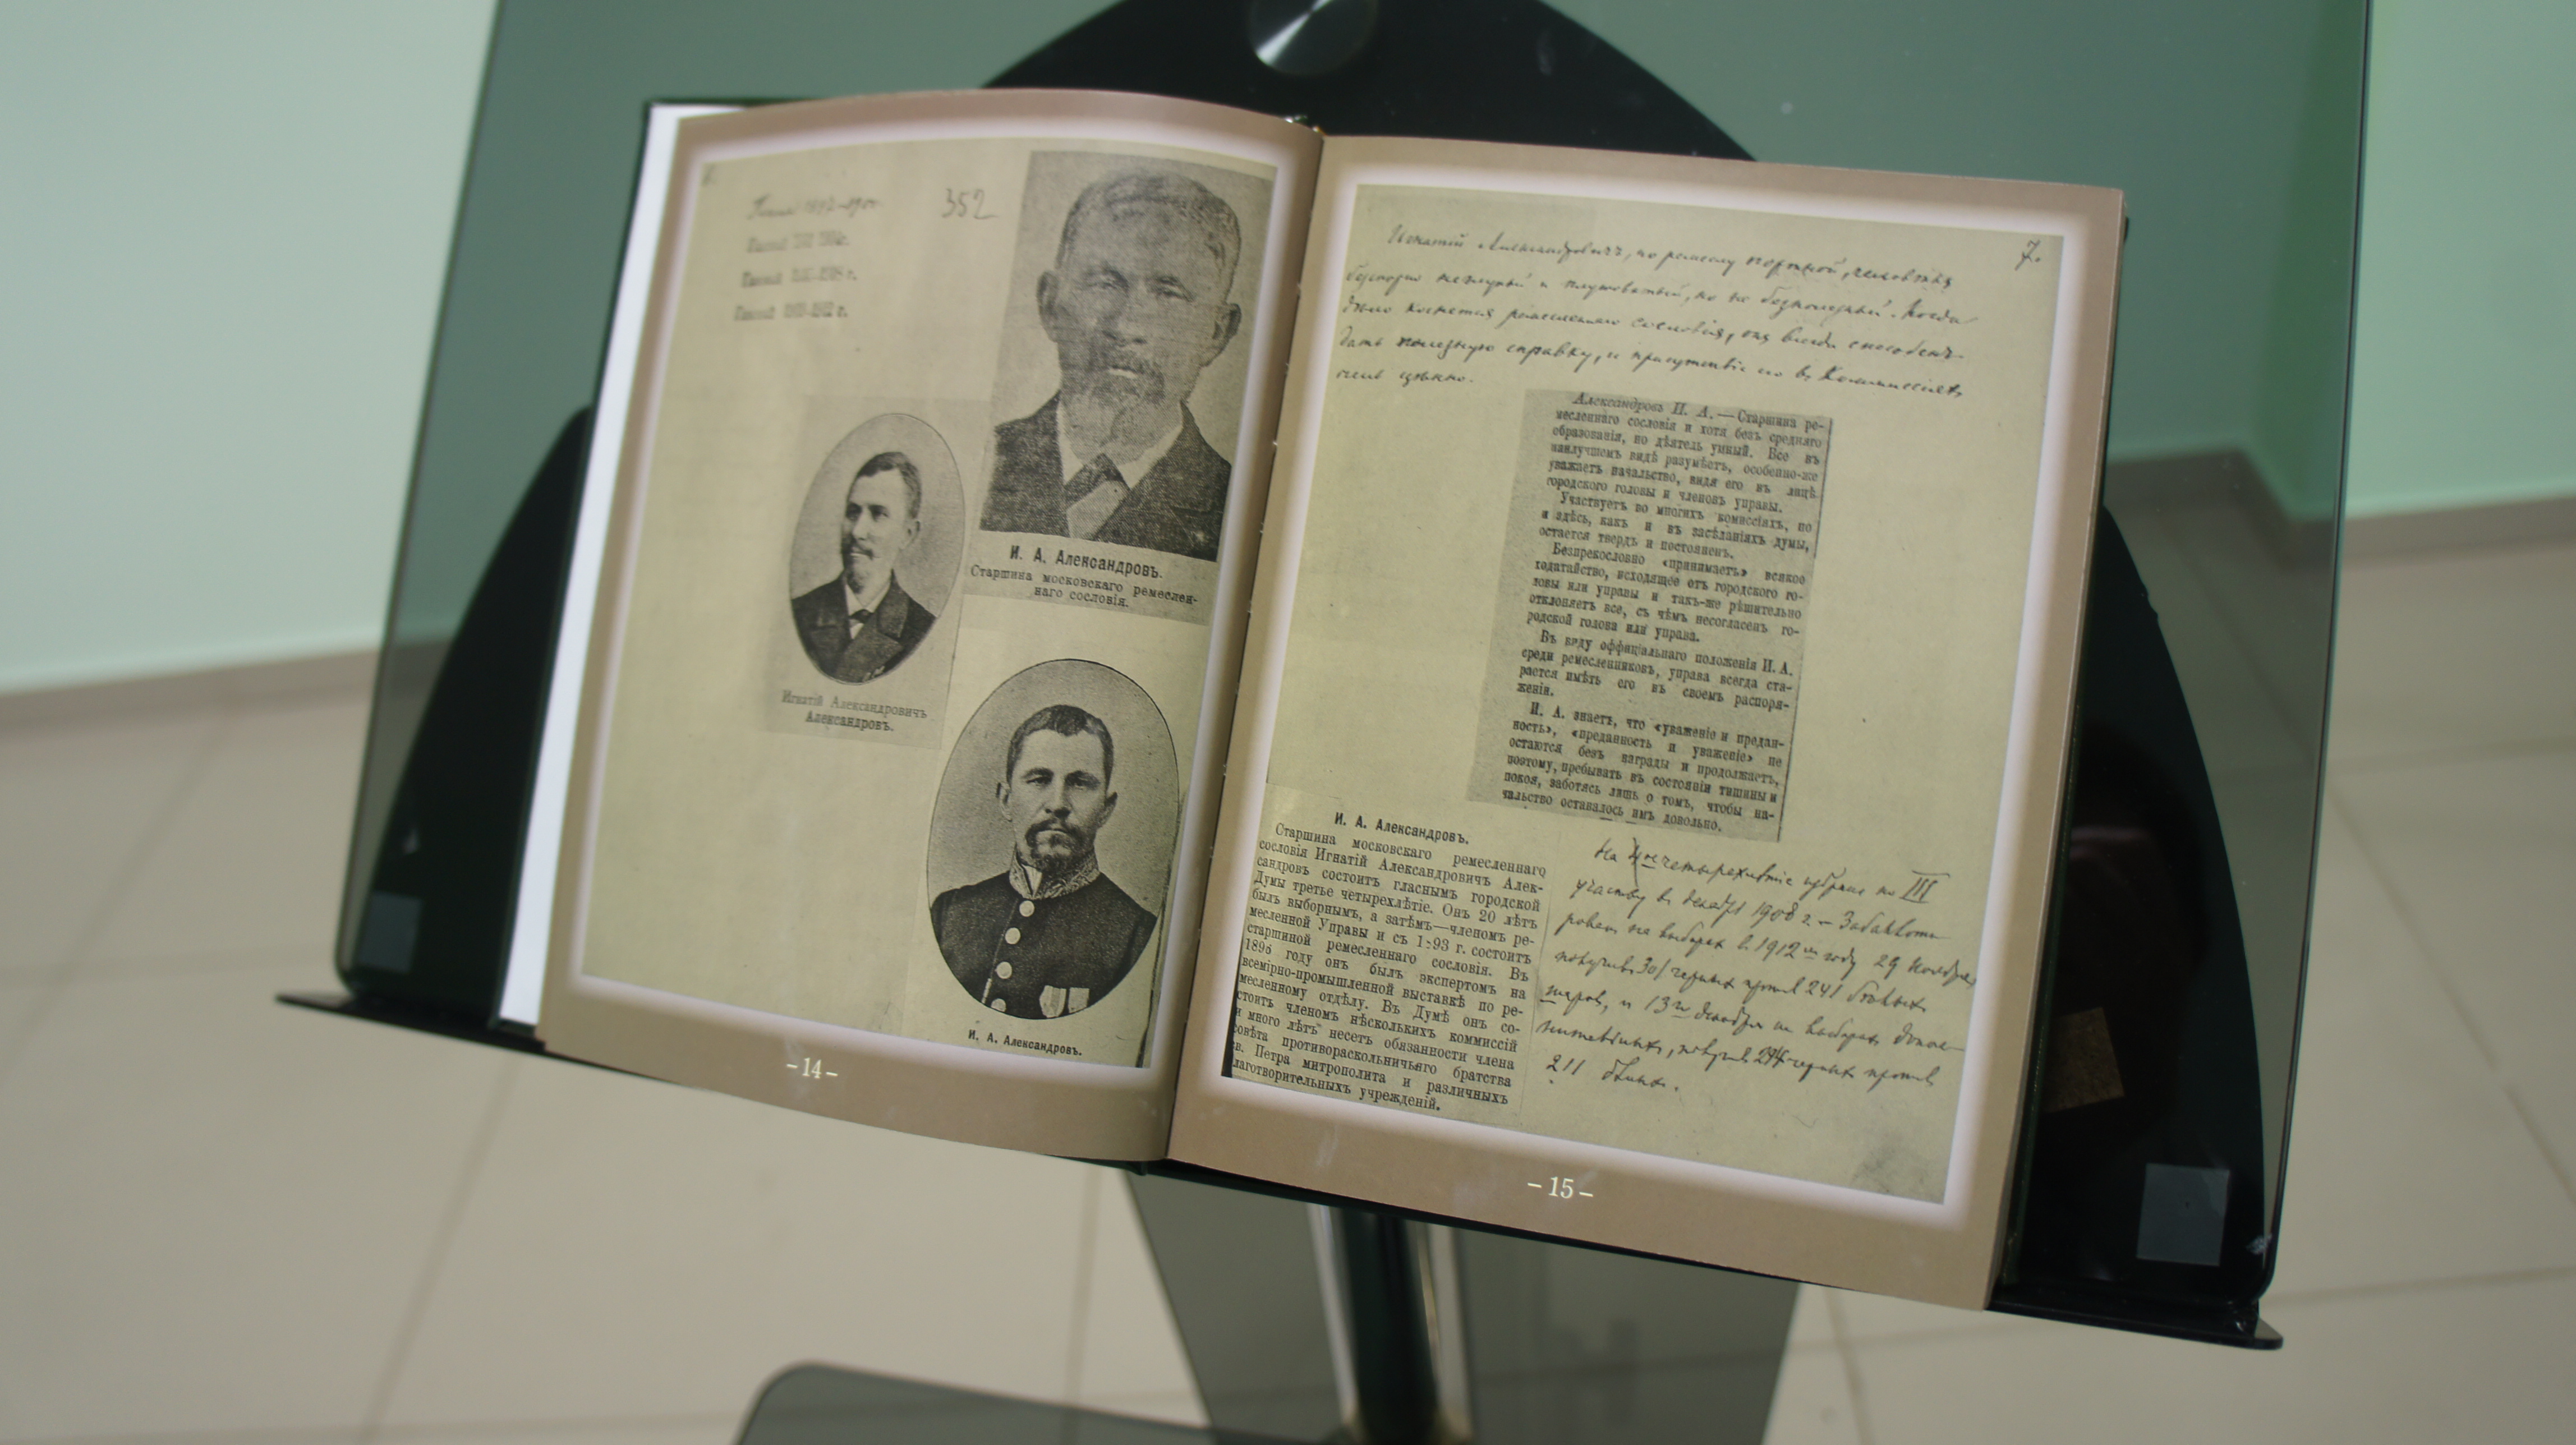 352
И. А. Александровъ.
Старшина московскаго ремеслен-
наго сословія.
Игнатій Александровичъ
Александровъ.
И. А. Александровъ.
– 14 –
7.
Игнатій Александровичъ, по ремеслу портной, человѣкъ
и плутоватый, но не безполезный. Когда
дѣло коснется ремесленнаго сословія, онъ всегда способенъ
дать полезную справку, и присутствіе его въ Коммиссіяхъ
очень цѣнно.
Александровъ И. А. — Старшина ре-
месленнаго сословія и хотя безъ средняго
образованія, но дѣятель умный. Все въ
наилучшемъ видѣ разумѣетъ, особенно-же
уважаетъ начальство, видя его въ лицѣ
городского головы и членовъ управы.
Участвуетъ во многихъ комиссіяхъ, но
и здѣсь, какъ и въ засѣданіяхъ думы,
остается твердъ и постояненъ.
Безпрекословно «принимаетъ» всякое
ходатайство, исходящее отъ городского го-
ловы или управы и такъ-же рѣшительно
отклоняетъ все, съ чѣмъ несогласенъ го-
родской голова или управа.
Въ виду оффиціальнаго положенія И. А.
среди ремесленниковъ, управа всегда ста-
рается имѣть его въ своемъ распоря-
женіи.
И. А. знаетъ, что «уваженіе и предан-
ность», «преданность и уваженіе» не
остаются безъ награды и продолжаетъ,
поэтому, пребывать въ состояніи тишины и
покоя, заботясь лишь о томъ, чтобы на-
чальство оставалось имъ довольно.
И. А. Александровъ.
Старшина московскаго ремесленнаго
сословія Игнатій Александровичъ Алек-
сандровъ состоитъ гласнымъ городской
Думы третье четырехлѣтіе. Онъ 20 лѣтъ
былъ выборнымъ, а затѣмъ—членомъ ре-
месленной Управы и съ 1893 г. состоитъ
старшиной ремесленнаго сословія. Въ
1896 году онъ былъ экспертомъ на
всемірно-промышленной выставкѣ по ре-
месленному отдѣлу. Въ Думѣ онъ со-
стоитъ членомъ нѣсколькихъ коммиссій
и много лѣтъ несетъ обязанности члена
совѣта противораскольничьяго братства
св. Петра митрополита и различныхъ
благотворительныхъ учрежденій.
На четырехлѣтіе избранъ по III
участку въ декабрѣ 1908 г. – Забаллоти-
рованъ на выборахъ въ 1912 году 29 Ноября,
получивъ 301 черныхъ противъ 241 бѣлыхъ
шаровъ, и 13го декабря на выборахъ допол-
нительныхъ, получивъ черныхъ противъ
211 бѣлыхъ.
– 15 –